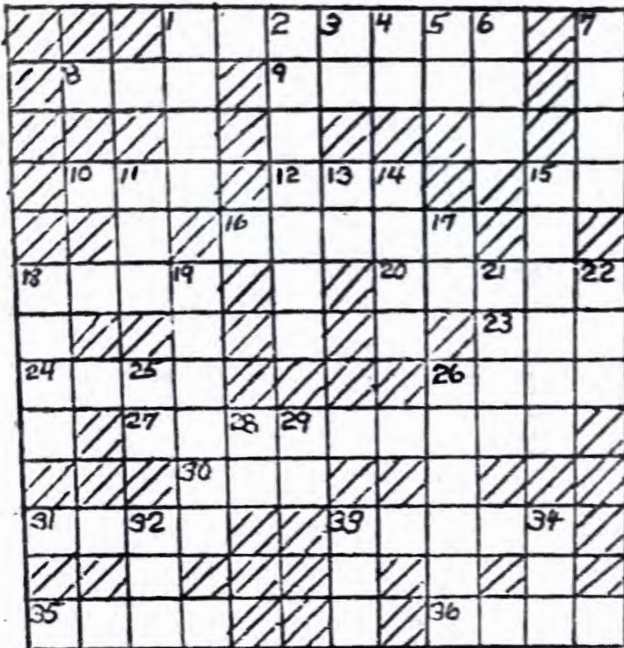 1 2 3 4 5 6 7
8 9
10 11 12 13 14 15
16 17
18 19 20 21 22
23
24 25 26
27 28 29
30
31 32 33 34
35 36